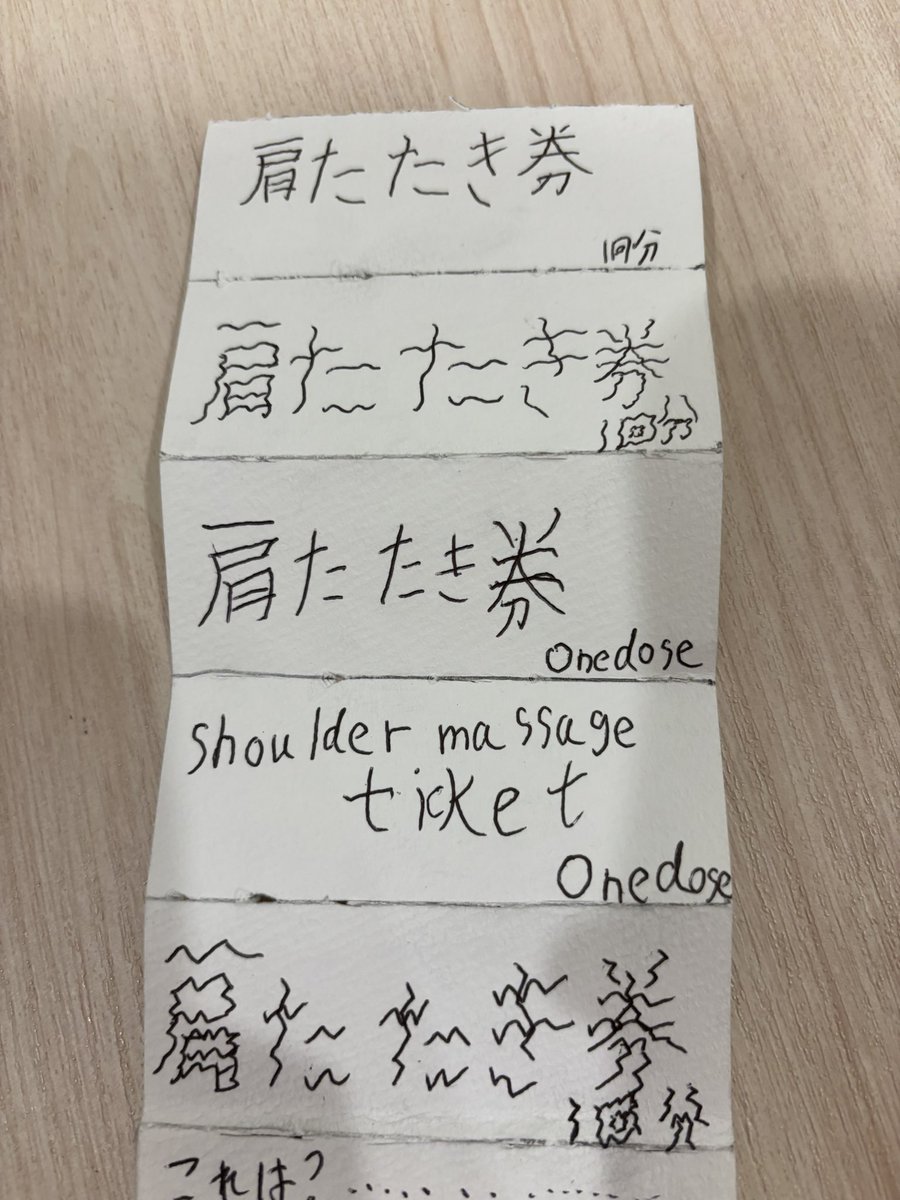 肩たたき券
1回分
肩たたき券
1回分
肩たたき券
Onedose
shoulder massage
ticket
Onedose
肩たたき券
1回分
これは?............